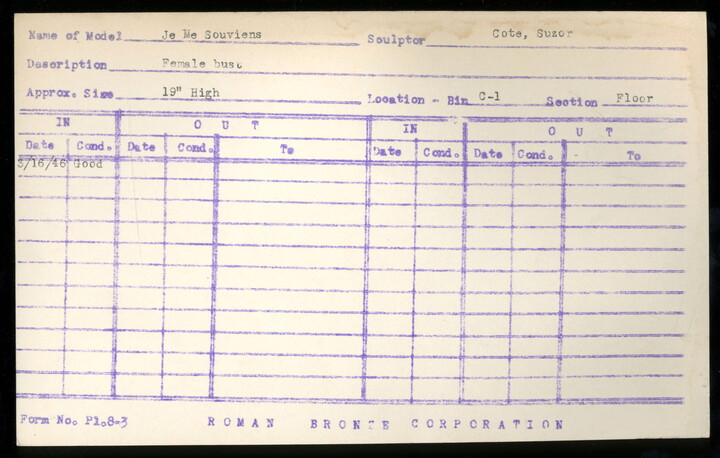 Name of Model Je Me Souviens Sculptor Cote, Suzor
Description Female bust
Approx. Size 19" High Location - Bin C-1 Section Floor
IN OUT IN OUT
Date Cond. Date Cond. To Date Cond. Date Cond. To
3/16/46 Good
Form No. P1.8-3 ROMAN BRONZE CORPORATION